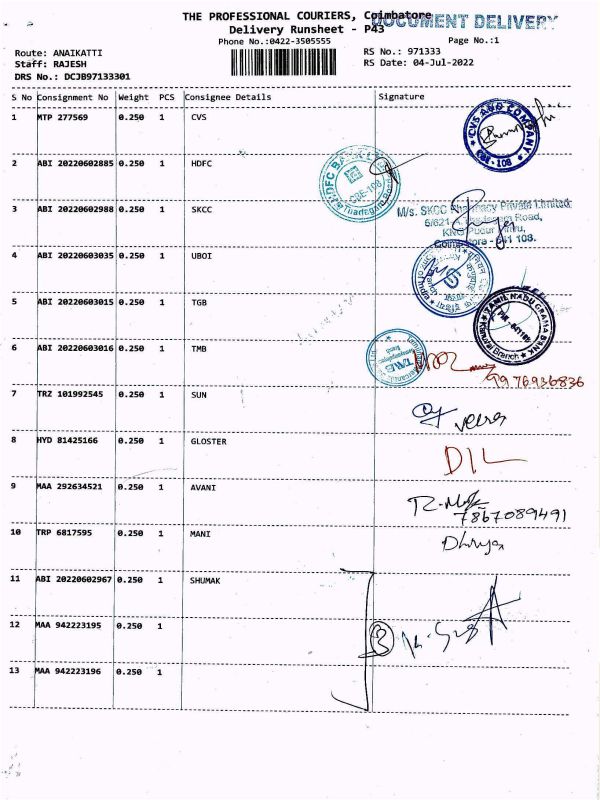 THE PROFESSIONAL COURIERS, Coimbatore
DOCUMENT DELIVERY
Delivery Runsheet - P43
Phone No.:0422-3505555
Page No.:1
Route: ANAIKATTI
RS No.: 971333
Staff: RAJESH
RS Date: 04-Jul-2022
DRS No.: DCJB97133301
S No Consignment No Weight PCS Consignee Details Signature
1 MTP 277569 0.250 1 CVS
CVS AND COMPANY
2 ABI 20220602885 0.250 1 HDFC
HDFC BANK
3 ABI 20220602988 0.250 1 SKCC
M/s. SKCC Pharmacy Private Limited
Road,
KNG Pudur
Coimbatore - 641 108.
4 ABI 20220603035 0.250 1 UBOI
5 ABI 20220603015 0.250 1 TGB
TAMIL NADU GRAMA BANK
Branch
6 ABI 20220603016 0.250 1 TMB
9976936836
7 TRZ 101992545 0.250 1 SUN
8 HYD 81425166 0.250 1 GLOSTER
DIL
9 MAA 292634521 0.250 1 AVANI
7867089491
10 TRP 6817595 0.250 1 MANI
Dhivya
11 ABI 20220602967 0.250 1 SHUMAK
12 MAA 942223195 0.250 1
3
13 MAA 942223196 0.250 1